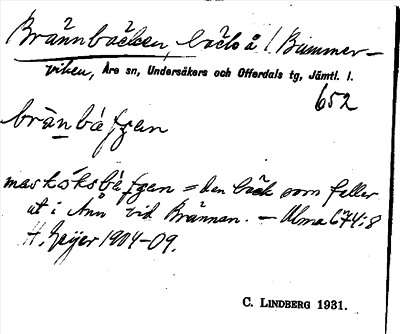 Brännbäcken, bäck å l. Bummer-
viken, Åre sn, Undersåkers och Offerdals tg, Jämtl. l.
652
brä̱nbá fgan
maskóksbá fgan = den bäck som faller
ut i Ånn vid Brännan. – Ulma 674:8
H. Geijer 1904–09.
C. LINDBERG 1931.